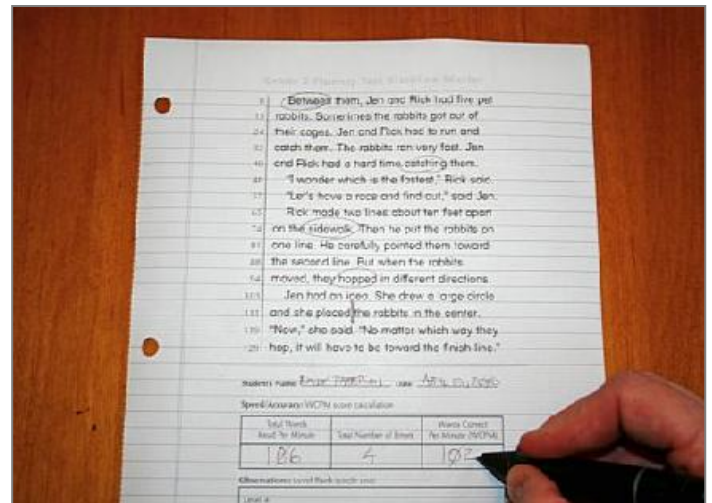 Grade 2 Fluency Test Blackline Master
Between them, Jen and Rick had five pet
rabbits. Sometimes the rabbits got out of
24 their cages. Jen and Rick had to run and
32 catch them. The rabbits ran very fast. Jen
40 and Rick had a hard time catching them.
48 "I wonder which is the fastest," Rick said.
57 "Let's have a race and find out," said Jen.
65 Rick made two lines about ten feet apart
74 on the sidewalk. Then he put the rabbits on
81 one line. He carefully pointed them toward
88 the second line. But when the rabbits
94 moved, they hopped in different directions.
103 Jen had an idea. She drew a large circle
111 and she placed the rabbits in the center.
119 "Now," she said. "No matter which way they
129 hop, it will have to be toward the finish line."
Student's Name Date
Speed/Accuracy: WCPM score calculation
Total Words Words Correct
Read Per Minute Total Number of Errors Per Minute (WCPM)
106 4 102
Observations
Level 4